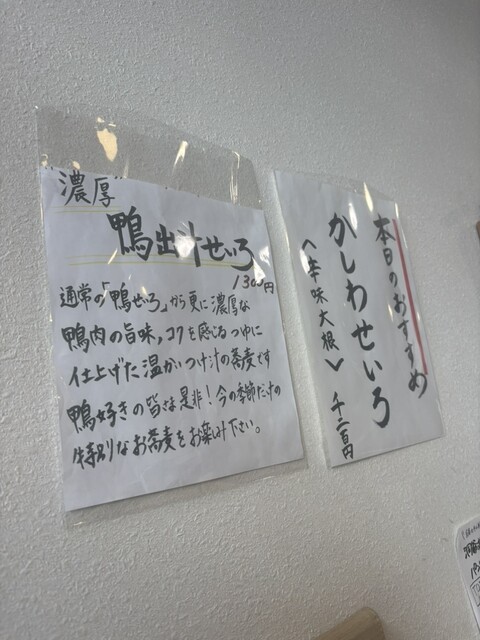 "濃厚"
鴨出汁せいろ
1300円
通常の「鴨せいろ」から更に濃厚な
鴨肉の旨味、コクを感じるつゆに
仕上げた温かいつけ汁の蕎麦です
鴨好きの皆な是非!今の季節だけの
特別なお蕎麦をお楽しみ下さい。
本日のおすすめ
かしわせいろ
〈辛味大根〉
千二百円